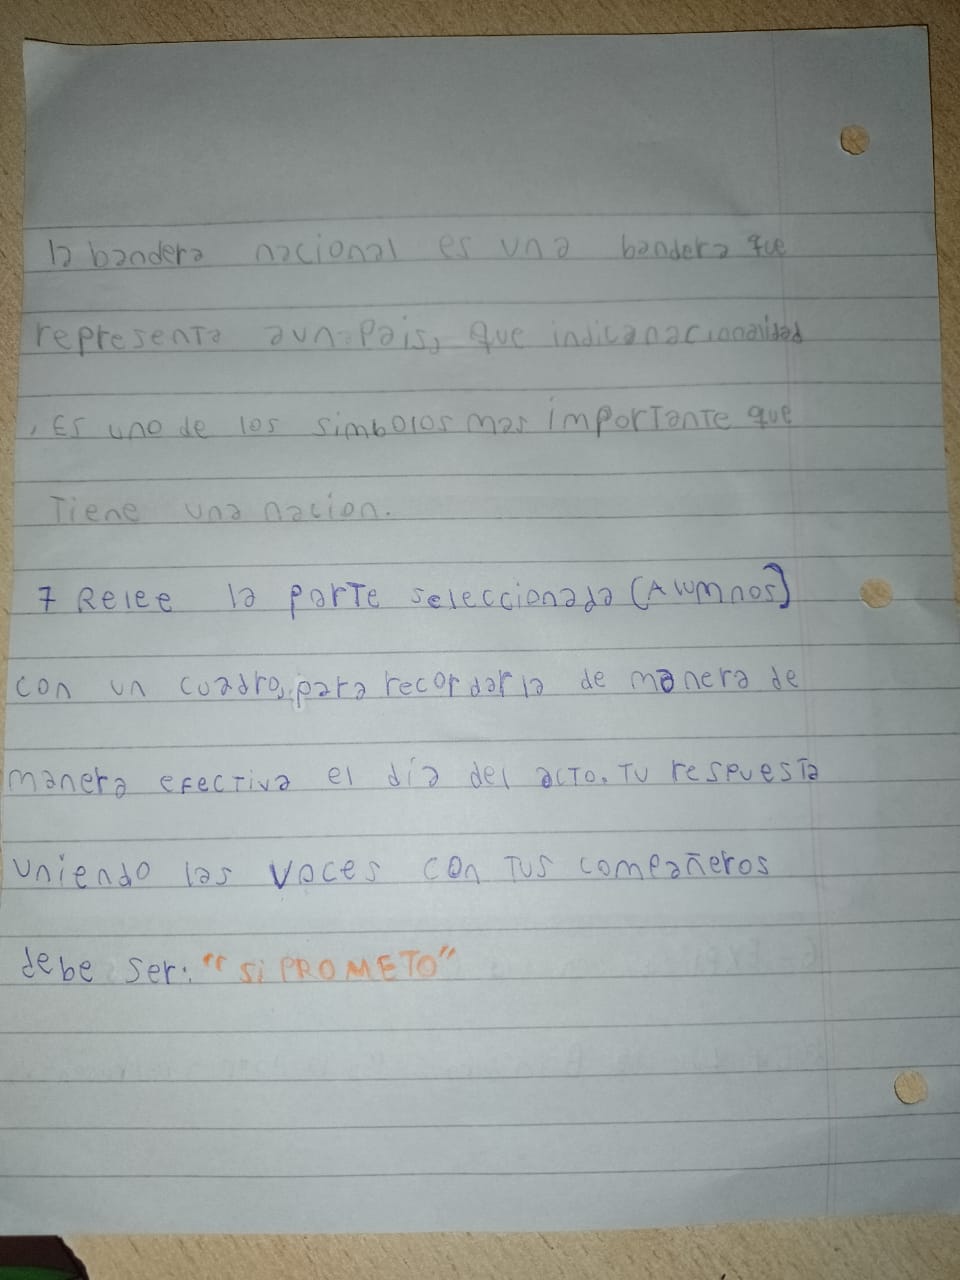 la bandera nacional es una bandera que
representa aun pais, que indica nacionalidad
, Es uno de los simbolos mas importante que
Tiene una nacion.
7 Relee la parte seleccionada (Alumnos)
con un cuadro, para recordarla de manera de
manera efectiva el día del acto. Tu respuesta
uniendo las voces con tus compañeros
debe ser: "si PROMETO"